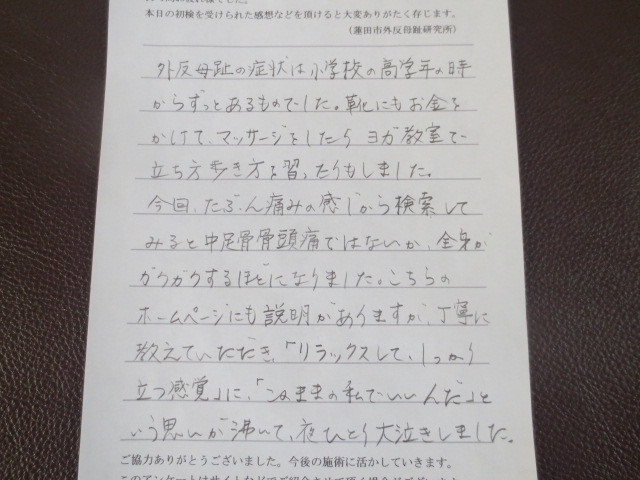 本日の初検を受けられた感想などを頂けると大変ありがたく存じます。
（蓮田市外反母趾研究所）
外反母趾の症状は小学校の高学年の時
からずっとあるものでした。靴にもお金を
かけて、マッサージをしたり ヨガ教室で
立ち方歩き方を習ったりもしました。
今回、たぶん痛みの感じから検索して
みると中足骨骨頭痛ではないか、全身が
ガクガクするほどになりました。こちらの
ホームページにも説明がありますが、丁寧に
教えていただき、「リラックスして、しっかり
立つ感覚」に、「このままの私でいいんだ」と
いう思いが沸いて、夜ひとり大泣きしました。
ご協力ありがとうございました。今後の施術に活かしていきます。